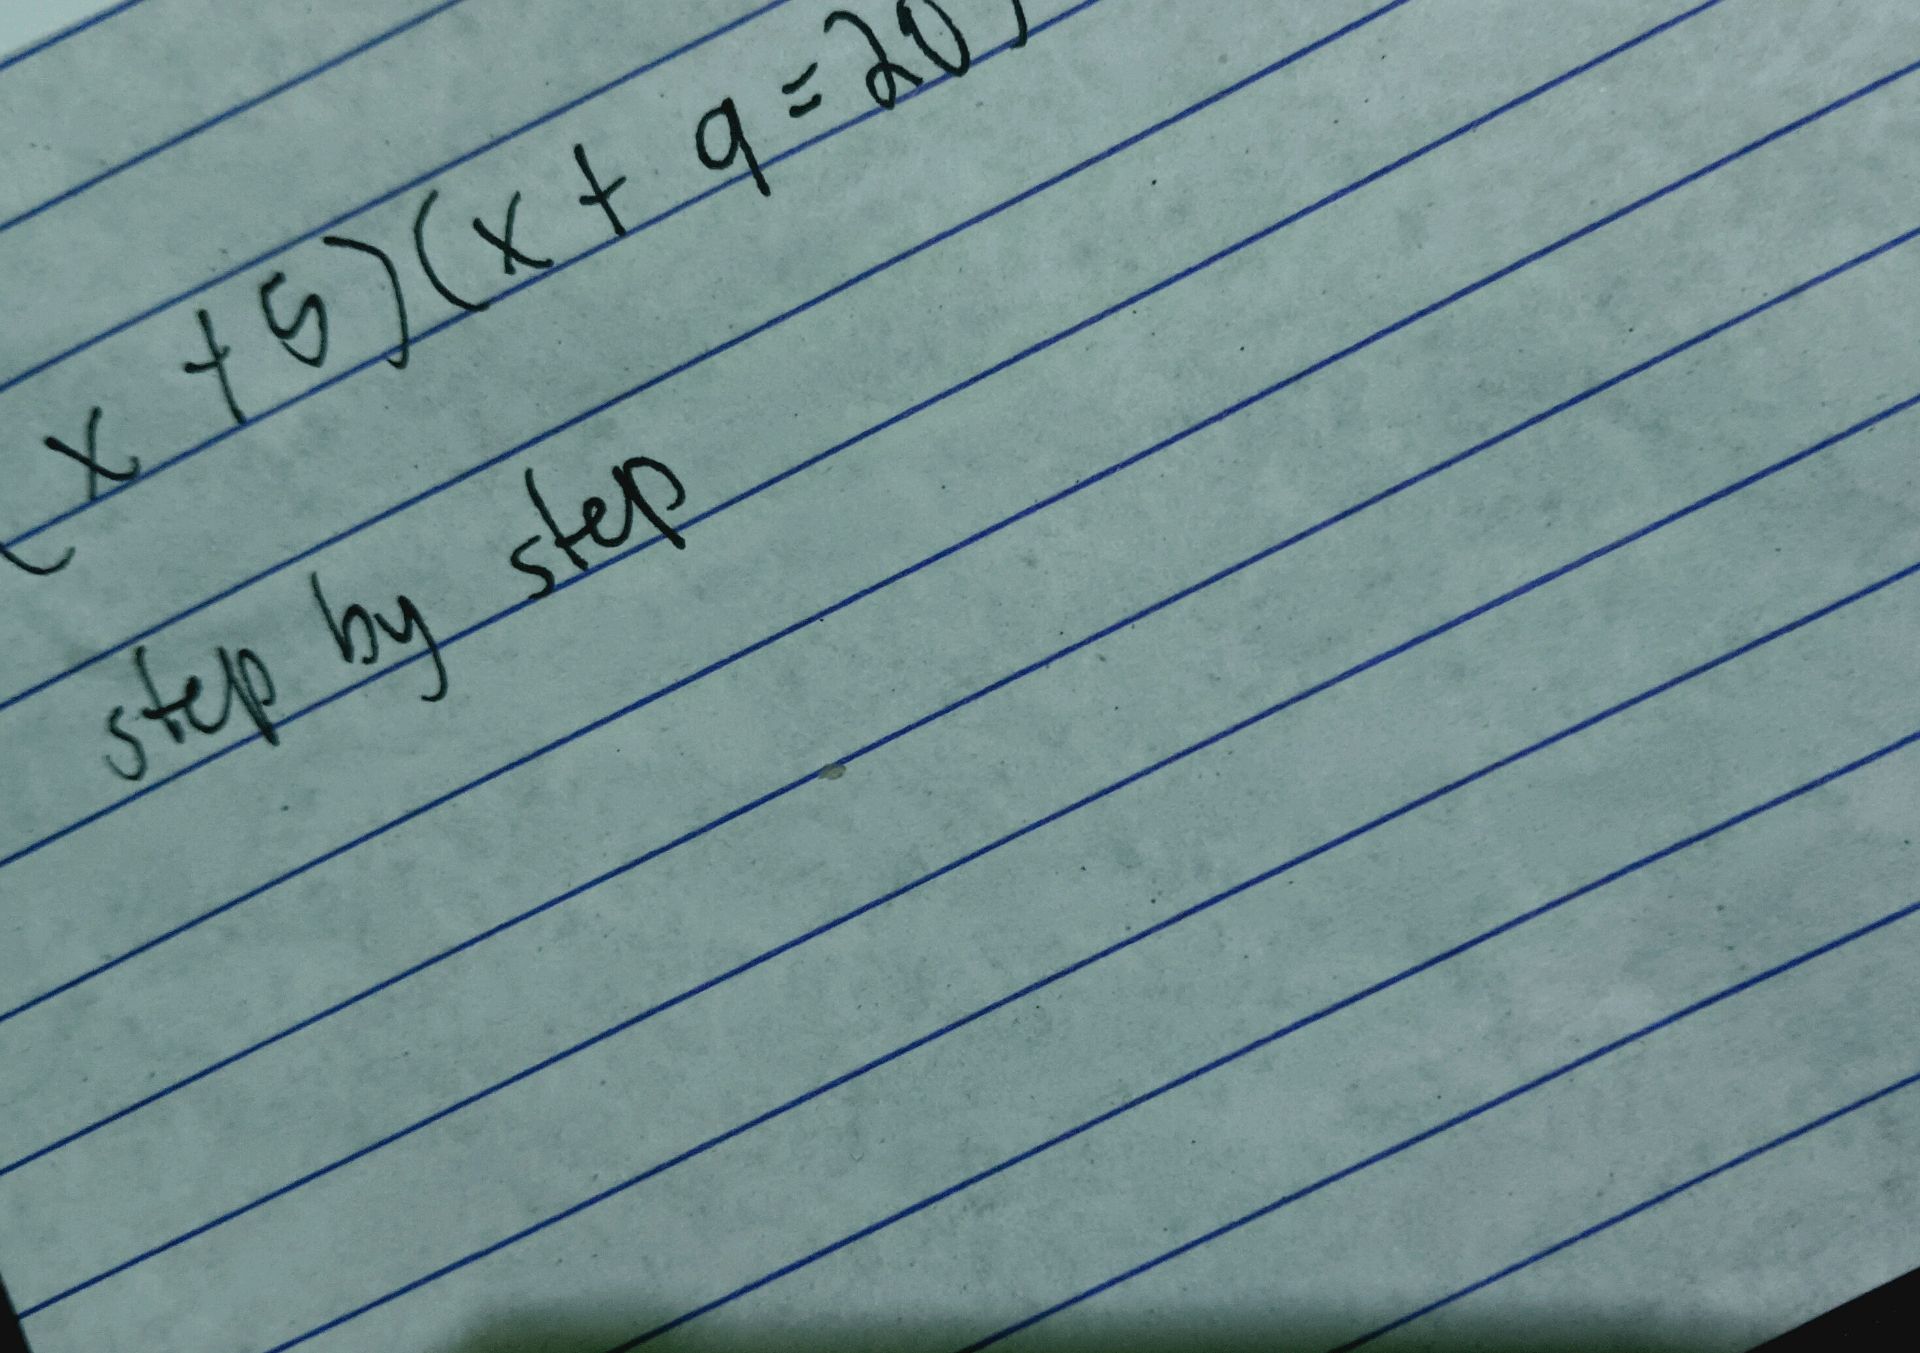 (x + 5)(x + 9 = 20)
step by step